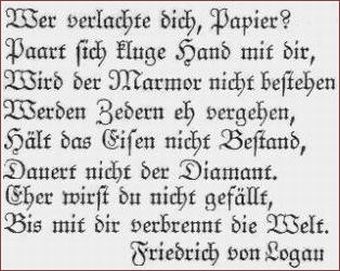 Wer verlachte dich, Papier?
Paart sich kluge Hand mit dir,
Wird der Marmor nicht bestehen
Werden Zedern eh vergehen,
Hält das Eisen nicht Bestand,
Dauert nicht der Diamant.
Eher wirst du nicht gefällt,
Bis mit dir verbrennt die Welt.
Friedrich von Logau